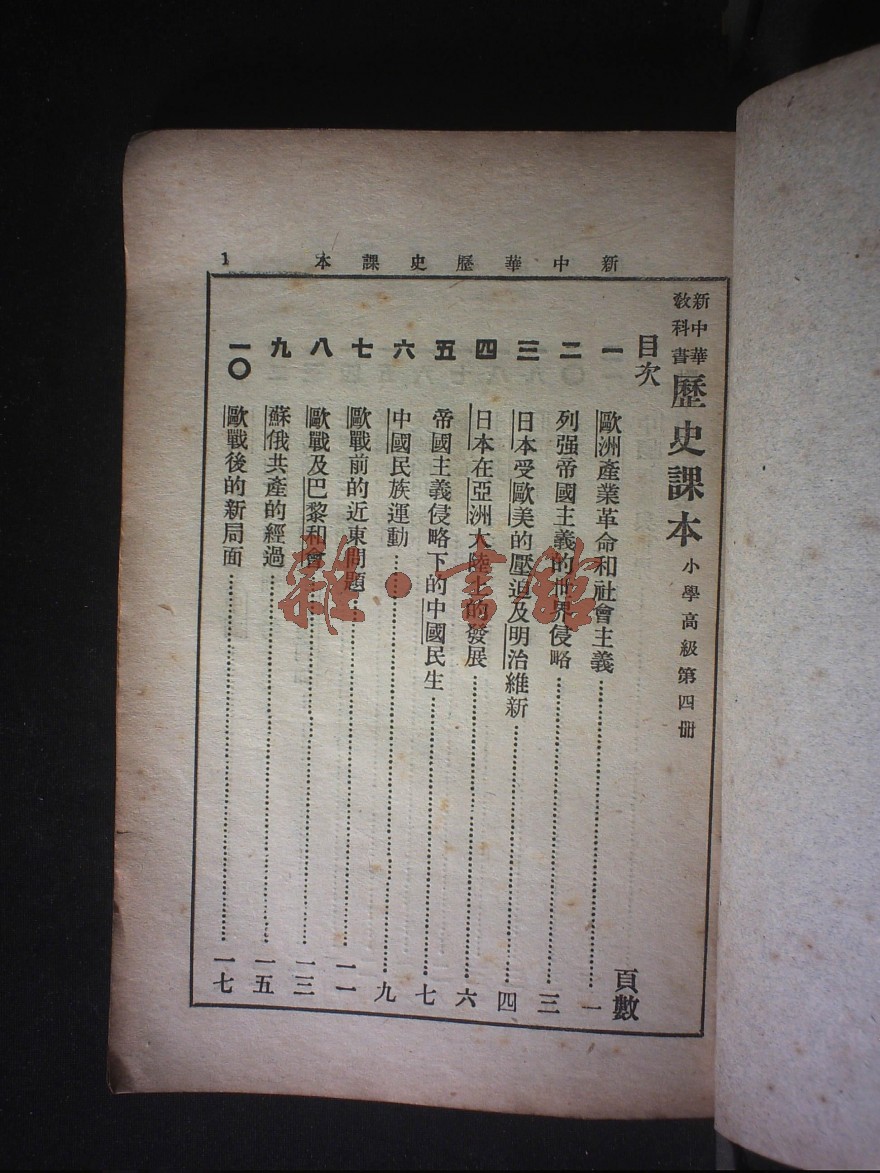 新中華歷史課本 1
新中華
教科書
歷史課本 小學高級第四冊
目次 頁數
一 歐洲產業革命和社會主義……一
二 列强帝國主義的世界侵略……三
三 日本受歐美的壓迫及明治維新……四
四 日本在亞洲大陸上的發展……六
五 帝國主義侵略下的中國民生……七
六 中國民族運動……九
七 歐戰前的近東問題……一一
八 歐戰及巴黎和會……一三
九 蘇俄共產的經過……一五
一〇 歐戰後的新局面……一七
雜·書館